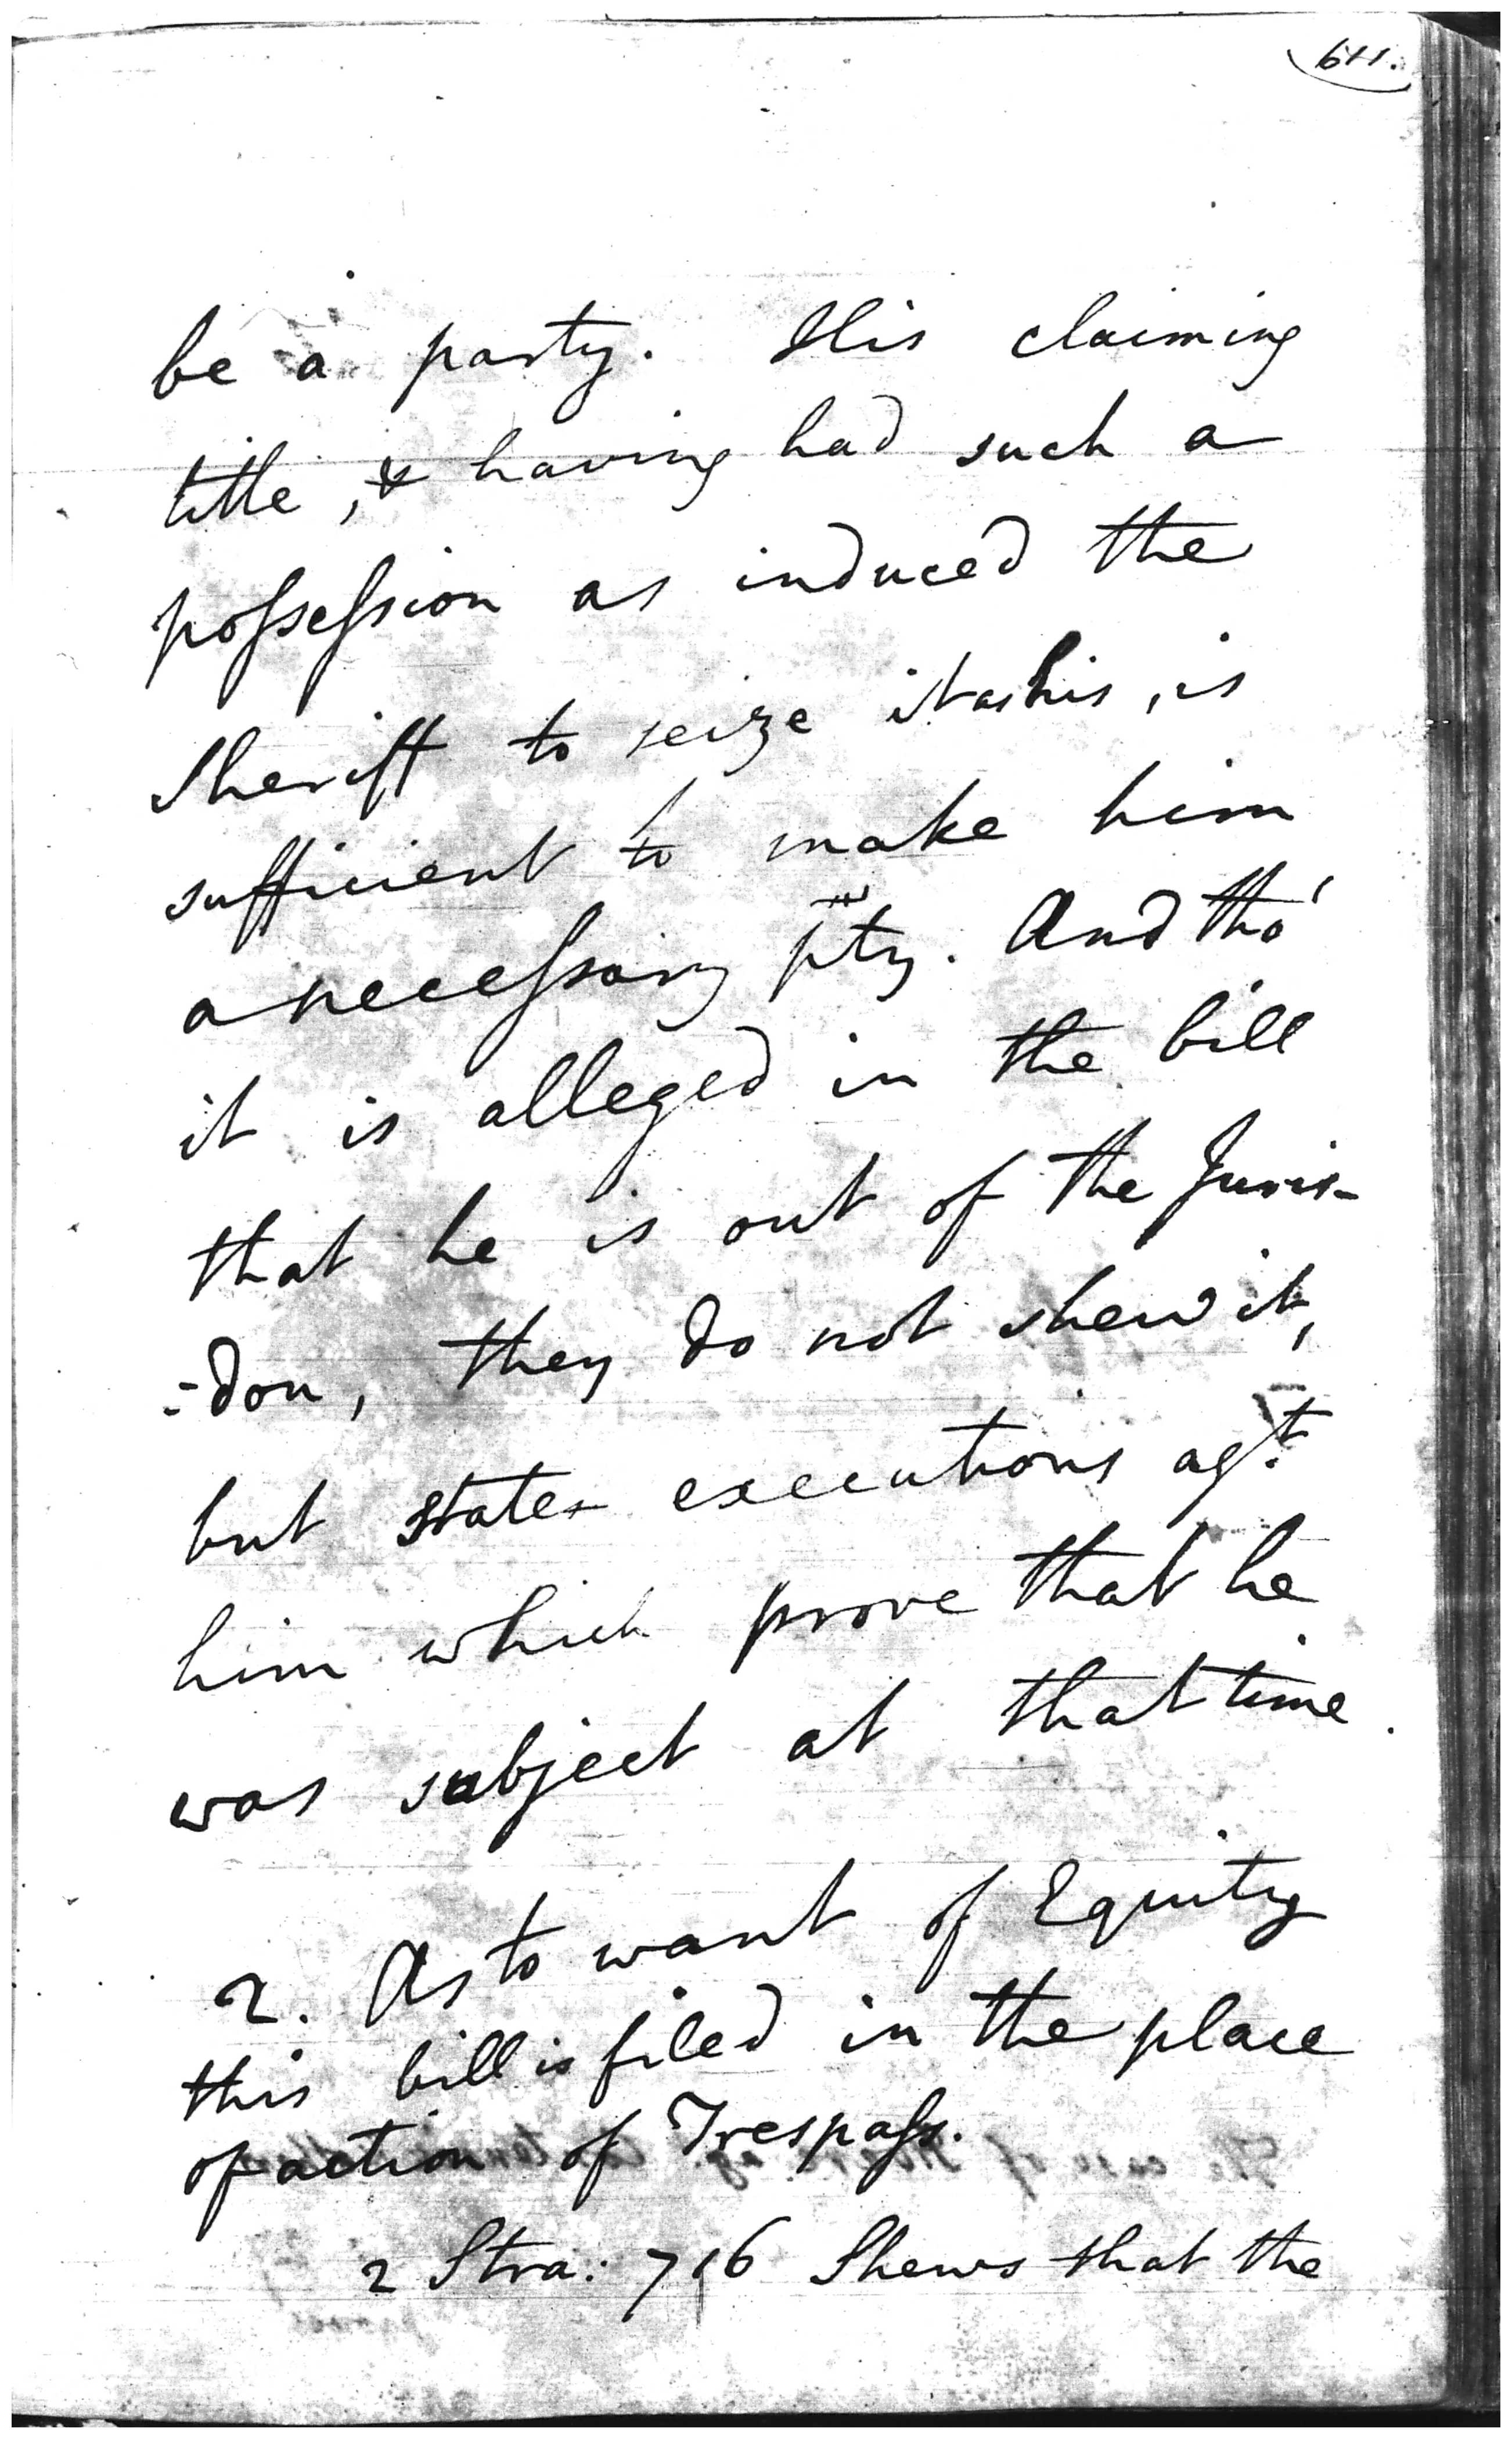 611.
be a party. His claiming
title, & having had such a
possession as induced the
Sheriff to seize it as his, is
sufficient to make him
a necessary pty. And tho'
it is alleged in the bill
that he is out of the Juris-
=don, they do not shew it,
but states executions agt.
him which prove that he
was subject at that time.
2. As to want of Equity
this bill is filed in the place
of action of Trespass.
2 Stra: 716 Shews that the